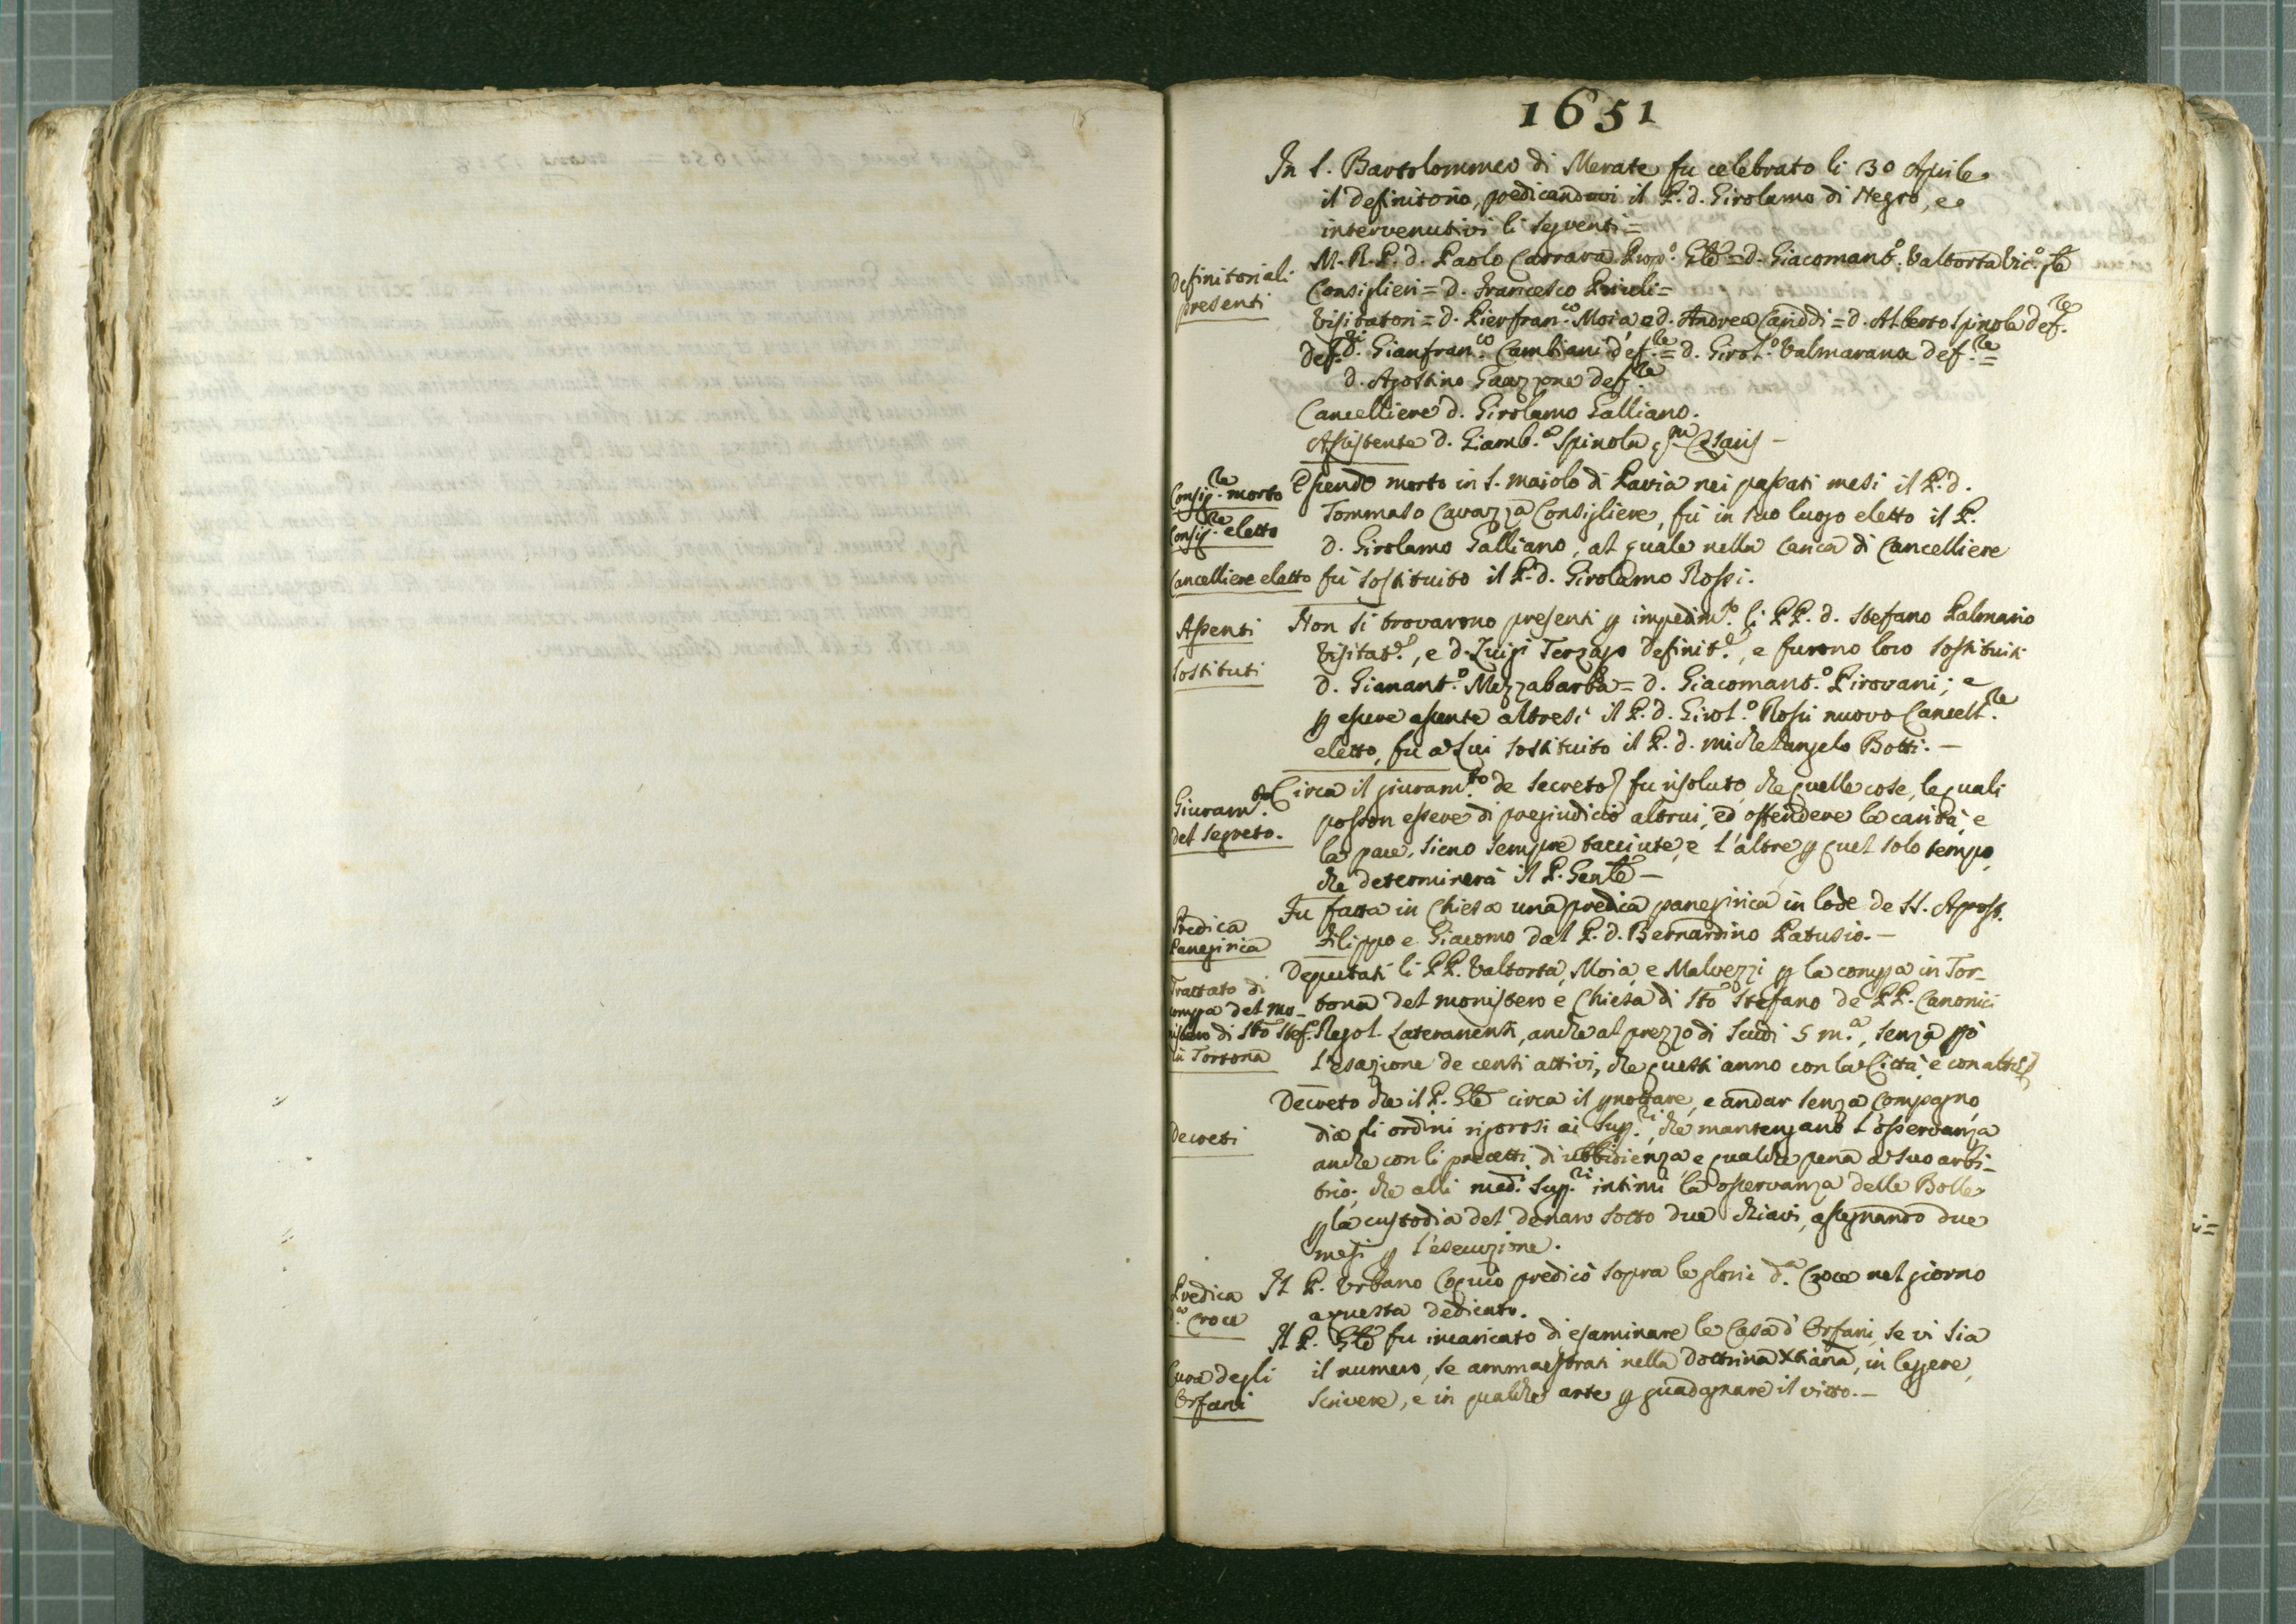 1651
In S. Bartolommeo di Merate fu celebrato li 30 Aprile
il definitorio, predicandovi il P. d. Girolamo di Negro, e
intervenutivi li seguenti =
Definitoriali
presenti
M. R. P. d. Paolo Carrara Prep.o Gnle = d. Giacomant.o Valtorta Vic.o Gnle
Consiglieri = d. Francesco
Visitatori = d. Pierfran.co Moia e d. Andrea = d. Alberto Spinola def.re
Def.ri d. Gianfran.co Cambiani def.re = d. Girol.o Valmarana def.re =
d. Agostino def.re
Cancelliere d. Girolamo Galliano.
Assistente d. Giamb.a Spinola
Consig.re morto
Consig.re eletto
Cancelliere eletto
Essendo morto in S. Maiolo di Pavia nei passati mesi il P. d.
Tommaso Cavazza Consigliere, fu in suo luogo eletto il P.
d. Girolamo Galliano, al quale nella carica di Cancelliere
fu sostituito il P. d. Girolamo Rossi.
Assenti
Sostituti
Non si trovarono presenti p impedim.to li PP. d. Stefano Palmario
Visitat.e, e d. Luigi Terzago Definit.e, e furono loro sostituiti
d. Gianant.o Mezzabarba = d. Giacomant.o Pirovani; e
p essere assente altresì il P. d. Girol.o Rossi nuovo Cancell.re
eletto, fu a Lui sostituito il P. d. Michelangelo Botti. —
Giuram.to
del Segreto.
Circa il giuram.to de secreto fu risoluto, che quelle cose, le quali
posson essere di pregiudicio altrui, ed offendere la carità, e
la pace, sieno sempre tacciute, e l'altre p quel solo tempo,
che determinerà il P. Genle —
Predica
Panegirica
Fu fatta in Chiesa una predica panegirica in lode de SS. Apost.
Filippo e Giacomo dal P. d. Bernardino Patusio. —
Trattato di
compra del mo-
nistero di Sto Stef.o
in Tortona
Deputati li PP. Valtorta, Moia, e Malvezzi p la compra in Tor-
tona del monistero e Chiesa di Sto Stefano de PP. Canonici
Regol. Lateranensi, anche al prezzo di Scudi 5 m.a, senza pò
l'esazione de censi attivi, che questi anno con la Città, e con altri
Decreti
Decreto che il P. Gnle circa il pnottare, e andar senza Compagno,
dia gli ordini rigorosi ai Sup.ri, che mantengano l'osservanza
anche con li precetti di ubbidienza e qualche pena a suo arbi-
trio; che alli med.i Sup.ri intimi la osservanza delle Bolle
p la custodia del denaro sotto due chiavi, assegnando due
mesi p l'esecuzione.
Predica
d.a Croce
Il P. Urbano Coquio predicò sopra le glorie d.a Croce nel giorno
a questa dedicato.
Cura degli
Orfani
Il P. Gnle fu incaricato di esaminare le Case d'Orfani, se vi sia
il numero, se ammaestrati nella dottrina Xtiana, in leggere,
scrivere, e in qualche arte p guadagnare il vitto. —